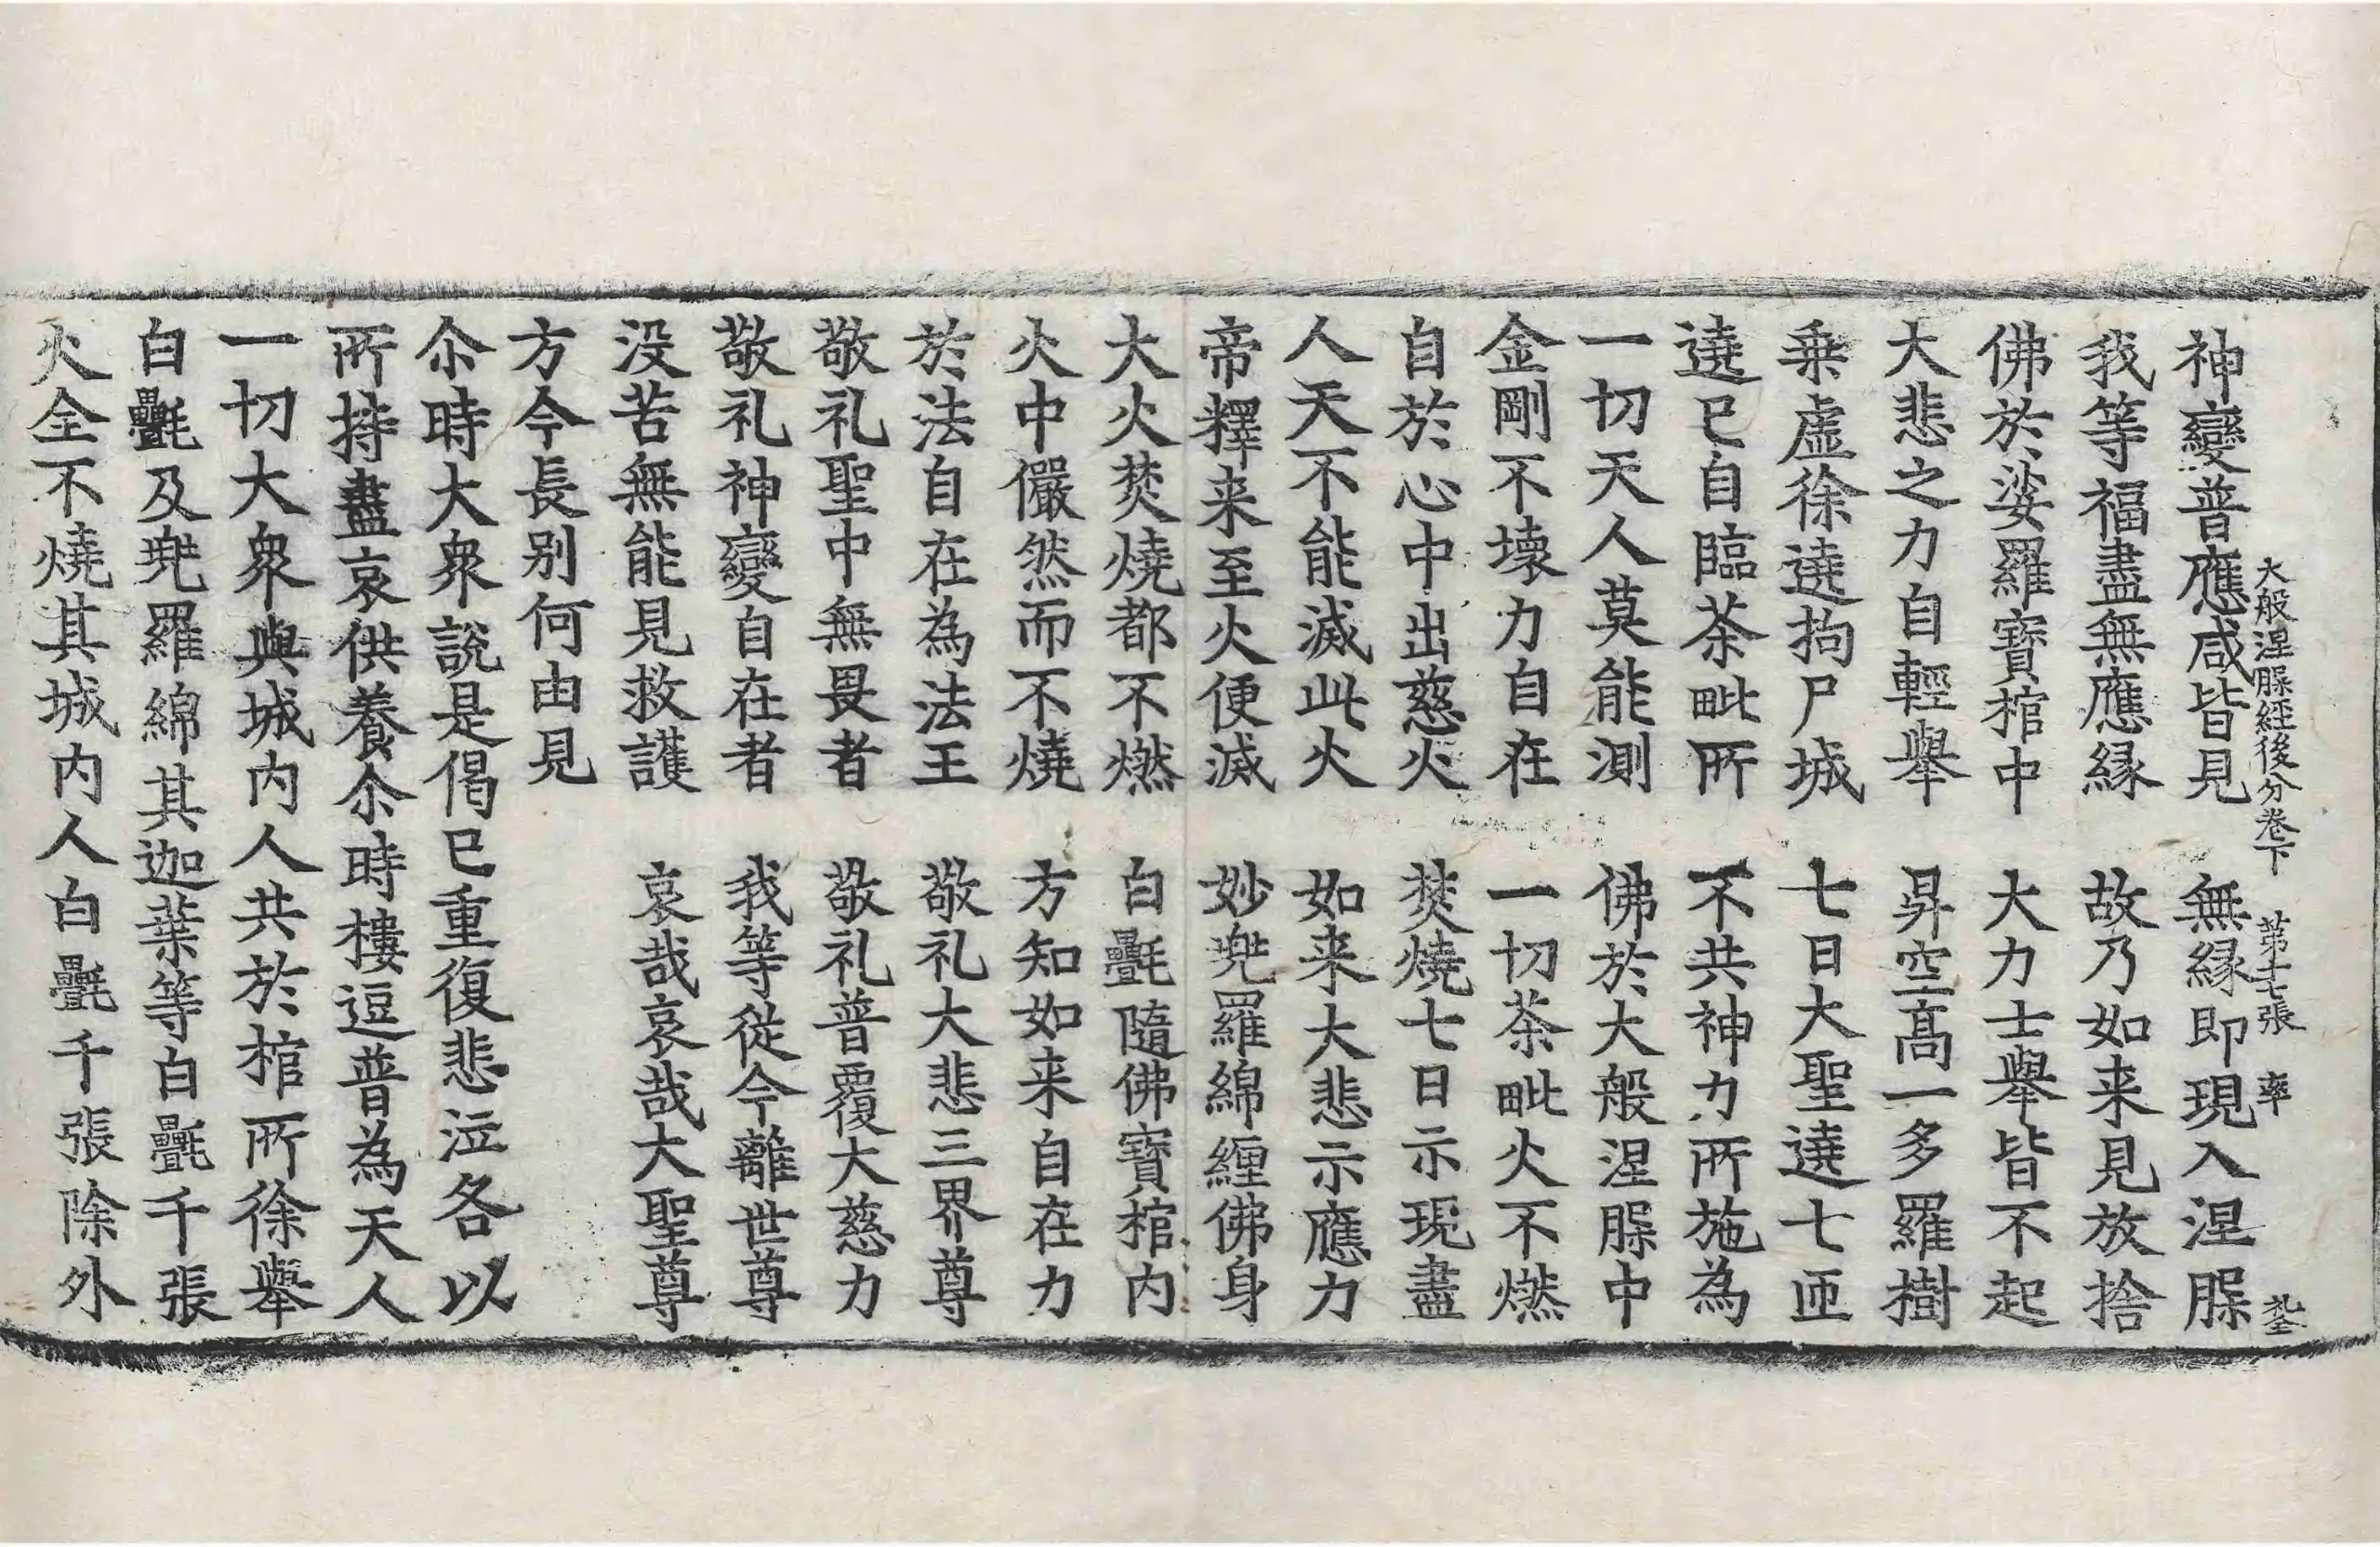 大般涅槃經後分卷下 第十七張 率
神變普應咸皆見 無縁即現入涅槃
我等福盡無應縁 故乃如来見放捨
佛於娑羅寳棺中 大力士舉皆不起
大悲之力自輕舉 昇空高一多羅樹
乗虚徐遶拘尸城 七日大聖遶七匝
遶已自臨茶毗所 不共神力所施為
一切天人莫能測 佛於大般涅槃中
金剛不壊力自在 一切茶毗火不燃
自於心中出慈火 焚燒七日示現盡
人天不能滅此火 如来大悲示應力
帝釋来至火便滅 妙兠羅綿纒佛身
大火焚燒都不燃 白㲲隨佛寳棺内
火中儼然而不燒 方知如来自在力
於法自在為法王 敬礼大悲三界尊
敬礼聖中無畏者 敬礼普覆大慈力
敬礼神變自在者 我等從今離世尊
没苦無能見救護 哀哉哀哉大聖尊
方今長别何由見
尒時大衆說是偈已重復悲泣各以
所持盡哀供養尒時樓逗普為天人
一切大衆與城内人共於棺所徐舉
白㲲及兠羅綿其迦葉等白㲲千張
火全不燒其城内人白㲲千張除外